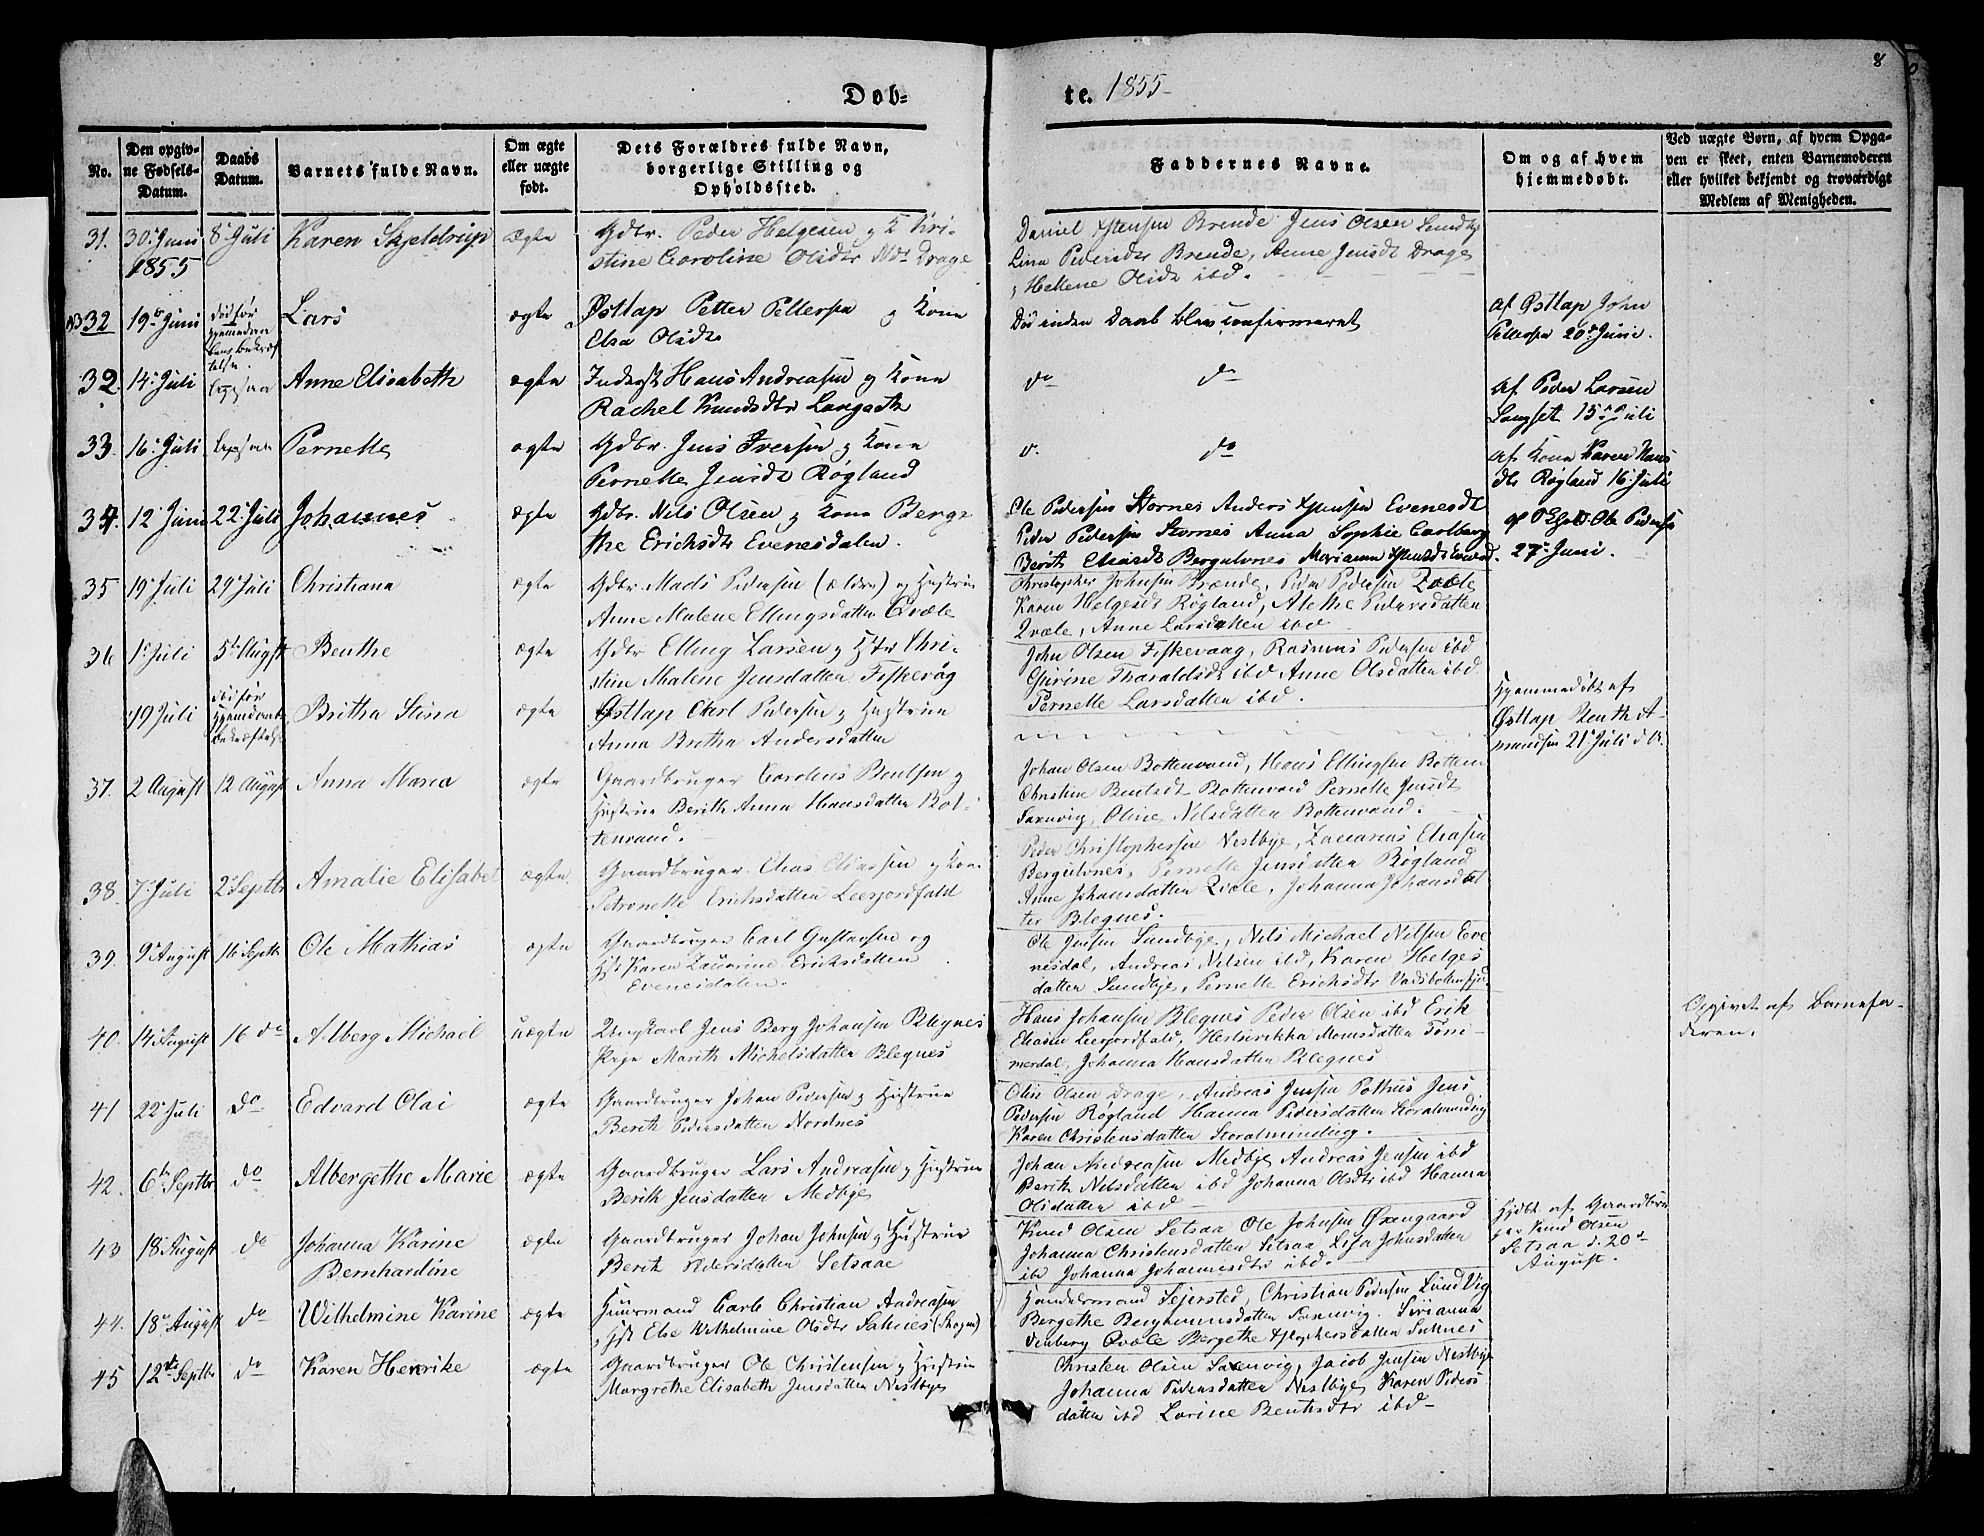 8
Døb=
te. 1855
No.
Den opgiv-
ne Fødsels-
Datum.
Daabs
Datum.
Barnets fulde Navn.
Om ægte
eller uægte
født.
Dets Forældres fulde Navn,
borgerlige Stilling og
Opholdssted.
Faddernes Navne.
Om og af hvem
hiemmedøbt.
Ved uægte Børn, af hvem Opga-
ven er skeet, enten Barnemoderen
eller hvilket bekjendt og troværdigt
Medlem af Menigheden.
31. 30. Juni 8. Juli Karen Skjeldrup ægte Gdbr. Peder Helgesen og K Kri-
1855 stine Caroline Olsdtr Drage
Daniel Brende Jens Olsen Sundby
Lina Brende, Anne Jensdt Drage
Hellene Olsdt ibd.
NB 32 19de Juni Lars ægte Østlap Petter Pettersen og Kone
Elsa Olsdtr
Død inden Daab blev confirmeret
af Østlap John
Pettersen 20de Juni.
32. 14. Juli Anne Elisabeth ægte Inderst Hans Andreasen og Kone
Rachel Knudsdtr Langseth
do do
af Peder Larsen
Langset 15de Juli
33. 16. Juli Pernelle ægte Gdbr Jens Iversen og Kone
Pernelle Jensdt Røgland
do
af Kone Karen Hans
dtr Røgland 16. Juli
34. 12. Juni 22. Juli Johannes ægte Gdbr. Nils Olsen og Kone Berge
the Erichsdtr Evenesdalen.
Ole Pedersen Stornes Anders Evenesdt
Peder Pedersen Stornes Anna Sophie Carlberg
Berith Eliasdt Bergulvnes Marianna
af Ole Peders
27. Juni.
35 19. Juli 29. Juli Christiana ægte Gdbr Mads Pedersen (ældre) og Hustrue
Anne Malene Ellingsdatter Qvæle
Christopher Johnsen Brænde, Peder Pedersen Qvæle
Karen Helgesdt Røgland, Alethe Pedersdatter
Qvæle, Anne Larsdatter ibd
36 1. Juli 5te Augst Benthe ægte Gdbr Elling Larsen og Hstr Chri-
stine Malene Jensdatter Fiskevåg
John Olsen Fiskevaag, Rasmus Pedersen ibd
Gjertine Tharaldsdt ibd Anne Olsdatter ibd
Pernelle Larsdatter ibd.
19 Juli Britha Stina ægte Østlap Carl Pedersen og Hustrue
Anna Britha Andersdatter
Hjemmedøbt af
Østlap Benth A-
mundsen 21. Juli d. A.
37. 2 August 12 August Anna Maria ægte Gaardbruger Carolius Bentsen og
Hustrue Berith Anna Hansdatter Bot-
tenvand.
Johan Olsen Bottenvand, Hans Ellingsen Botten
Christine Bentsdt Bottenvand Pernelle Jensdt
Saxnvig, Oline Nilsdatter Bottenvand.
38. 7. Juli 2. Septbr Amalie Elisabet ægte. Gaardbruger Elias Eliassen og Kone
Petronelle Erichsdatter Leerfjordfald
Peder Christophersen Nestbye, Zacarias Eliasen
Bergulvnes, Pernelle Jensdatter Røgland
Anne Johansdatter Qvæle, Johanna Johansdat
ter Blegnes.
39. 9. August 16 Septbr Ole Mathias ægte Gaardbruger Carl Gustavsen og
Hst Karen Zacarine Erichsdatter
Evenesdalen.
Ole Jensen Sundbye, Nils Michael Nilsen Eve
nesdal, Andreas Nilsen ibd, Karen Helges
datter Sundbye, Pernelle Erichsdtr
40. 14 August 16 do Alberg Michael uægte Ungkarl Jens Berg Johansen Blegnes
Pige Marith Michelsdatter Blegnes
Hans Johansen Blegnes Peder Olsen ibd Erik
Eliasen Leerfjordfald, Momsdatter Tøm-
merdal, Johanna Hansdatter Blegnes
Opgivet af Barnefa-
deren.
41 22. Juli do Edvard Olai ægte Gaardbruger Johan Pedersen og Hustrue
Berith Pedersdatter Nordnes
Olsen Drage, Andreas Jensen Pothus Jens
Pedersen Røgland Hanna Pedersdatter Storalmending
Karen Christensdatter Storalminding.
42. 6te Septbr do Albergethe Marie ægte Gaardbruger Lars Andreasen og Hustrue
Berith Jensdatter Medbye
Johan Andreasen Medbye Andreas Jensen ibd
Berith Nilsdatter ibd Johanna Olsdtr ibd Hanna
Olsdatter ibd
43 18 August do Johanna Karine ægte Gaardbruger Johan Johnsen og Hustrue
Bernhardine Berith Pedersdatter Setsaae
Knud Olsen Setsaa Ole Johnsen Øxengaard
Johanna Christensdatter Setsaa Lisa Johnsdatter
ibd Johanna Johannesdtr ibd.
Hjdbt. af Gaardbru
ger Knud Olsen
Setsaa d. 20de
August.
44. 18. August do Wilhelmine Karine ægte Huusmand Carl Christian Andreasen
og Hst Else Wilhelmine Olsdtr Saknes (Skogen)
Handelsmand Sejersted, Christian Pedersen Lund Vig
Bergethe Saxnvig. Sirianna
Venberg Qvæle Bergethe Saknes
45 12te Septbr do Karen Henrike ægte Gaardbruger Ole Christensen og Hustrue
Margrethe Elisabeth Jensdatter Nestbye
Christen Olsen Saxnvig, Jacob Jensen Nestbye
Johanna Pedersdatter Nestbye Karen Peders
datter ibd Lorine Bentsdtr ibd